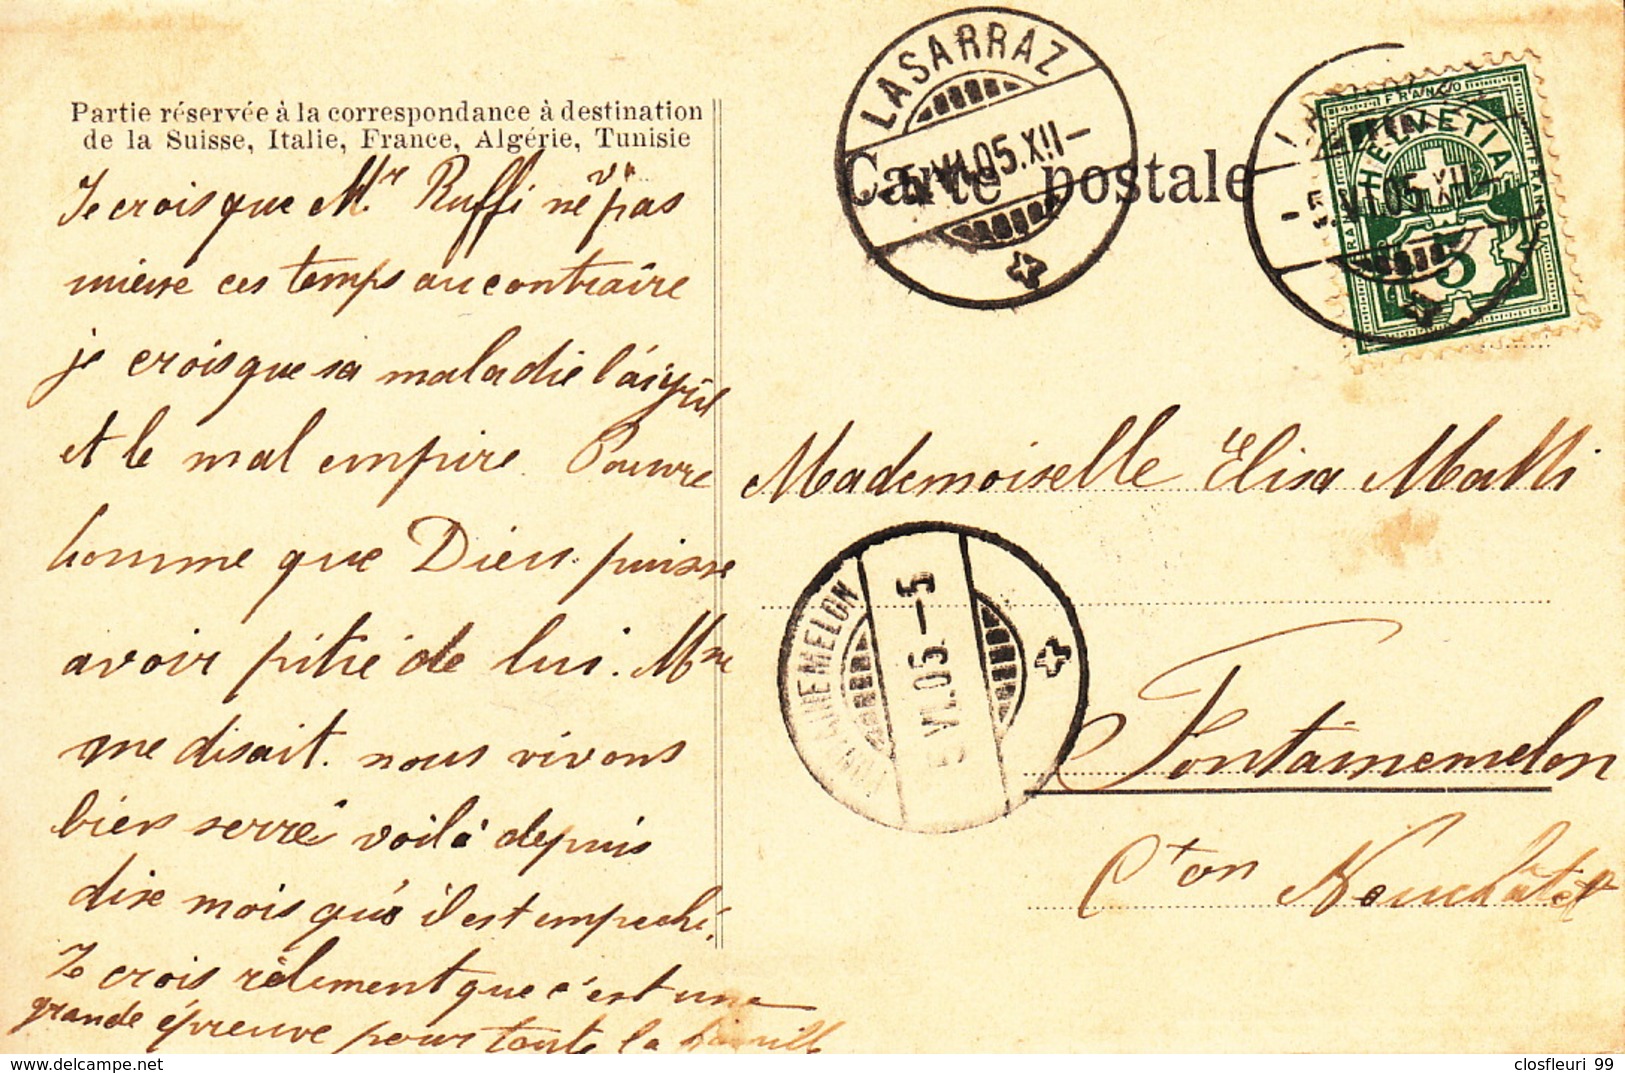 Partie réservée à la correspondance à destination
de la Suisse, Italie, France, Algérie, Tunisie
Je crois que Mr Ruffi ne va pas
mieux ces temps au contraire
je crois que sa maladie l'aigrit
et le mal empire. Pauvre
homme que Dieu puisse
avoir pitié de lui. Mme
me disait. nous vivons
bien serré voilà depuis
dixe mois qu'il est empeché.
Je crois rélement que c'est une
grande épreuve pour toute la famille
Carte postale
LASARRAZ
5.VI.05.XII-
HELVETIA
FRANCO
5
-5.VI.05.XII-
Mademoiselle Elisa Matti
FONTAINEMELON
5.VI.05.-5
Fontainemelon
Cton Neuchâtel
closfleuri 99